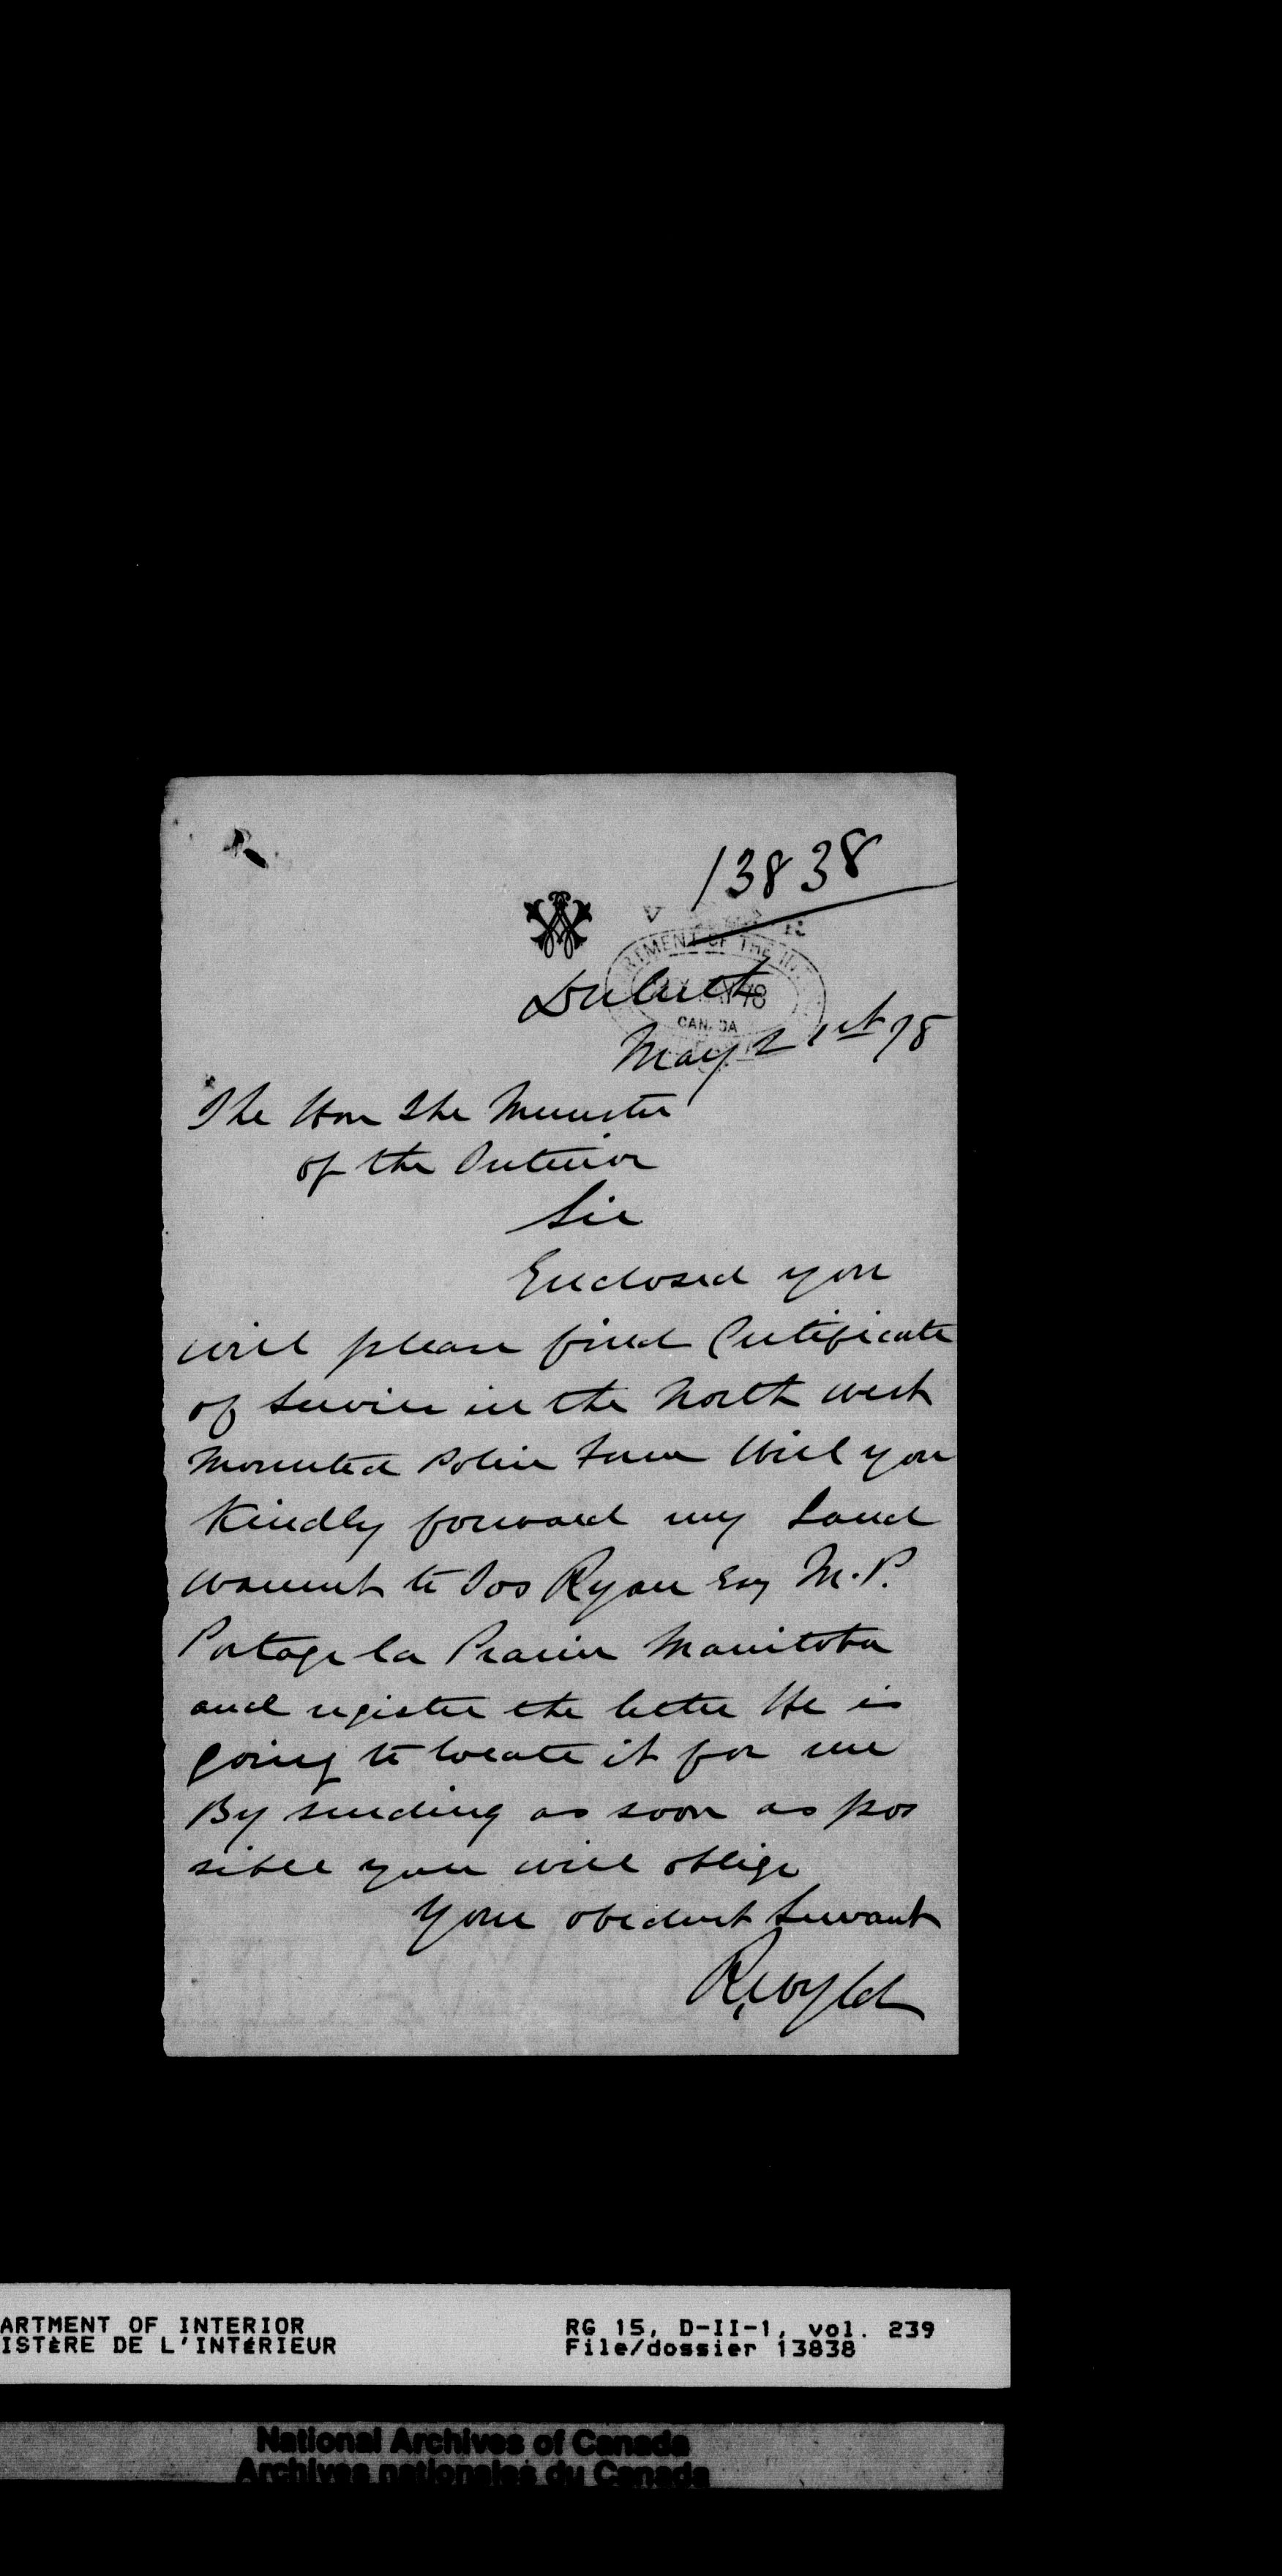 13838
RTMENT OF THE
CANADA
Duluth
May 21st 78
The Hon The Minister
of the Interior
Sir
Enclosed you
will please find Certificate
of Service in the North West
Mounted Police Force Will you
Kindly forward my Land
warrant to Jos Ryan Esq M.P.
Portage la Prairie Manitoba
and register the letter He is
going to locate it for me
By sending as soon as pos
sible you will oblige
Your obedient Servant
R. Wyld
ARTMENT OF INTERIOR
ISTÈRE DE L'INTÉRIEUR
RG 15, D-II-1, vol. 239
File/dossier 13838
National Archives of Canada
Archives nationales du Canada